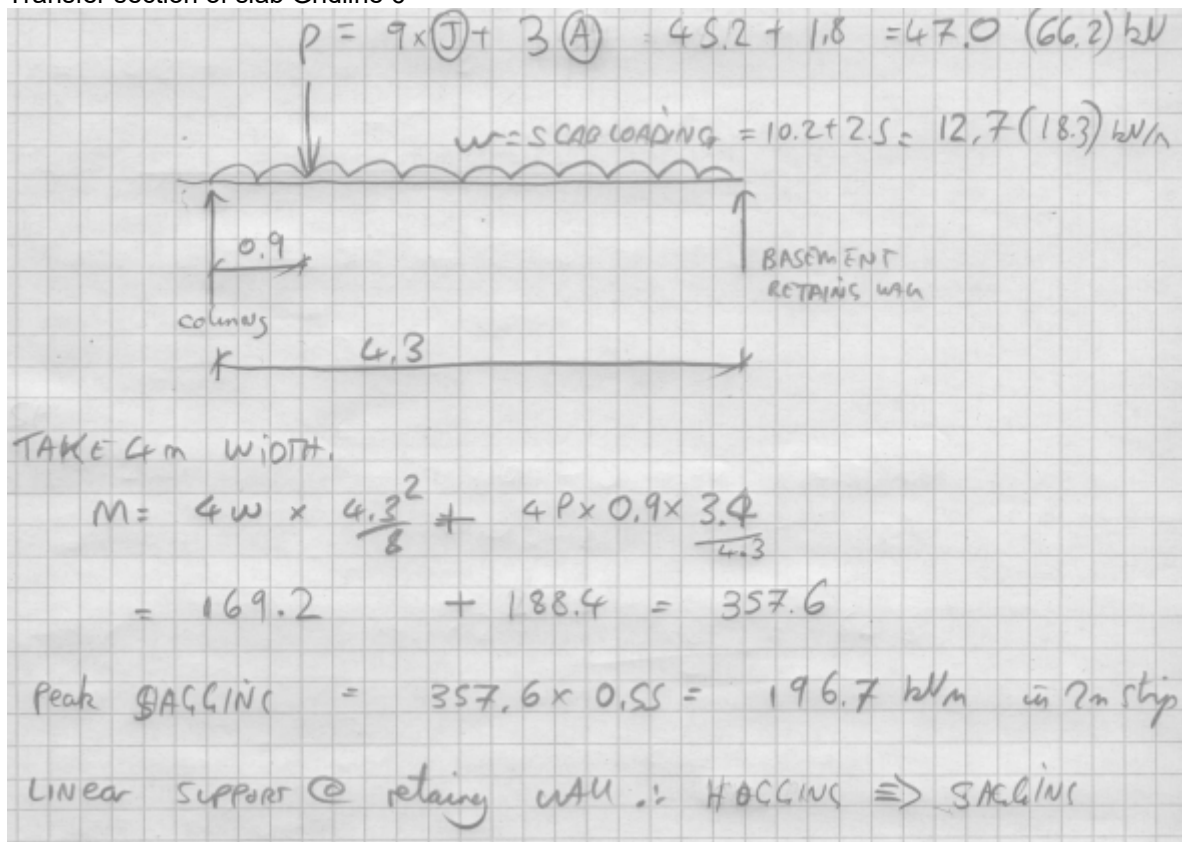 Transfer section of slab Gridline
P = 9×(J) + 3(A) = 45.2 + 1.8 = 47.0 (66.2) kN
w = SLAB LOADING = 10.2 + 2.5 = 12.7 (18.3) kN/m
0.9
BASEMENT
RETAINING WALL
columns
4.3
TAKE 4m WIDTH.
M = 4w × 4.3²/8 + 4P × 0.9 × 3.4/4.3
= 169.2 + 188.4 = 357.6
Peak SAGGING = 357.6 × 0.55 = 196.7 kNm in 2m strip
LINEAR SUPPORT @ retaining WALL ∴ HOGGING ≡> SAGGING